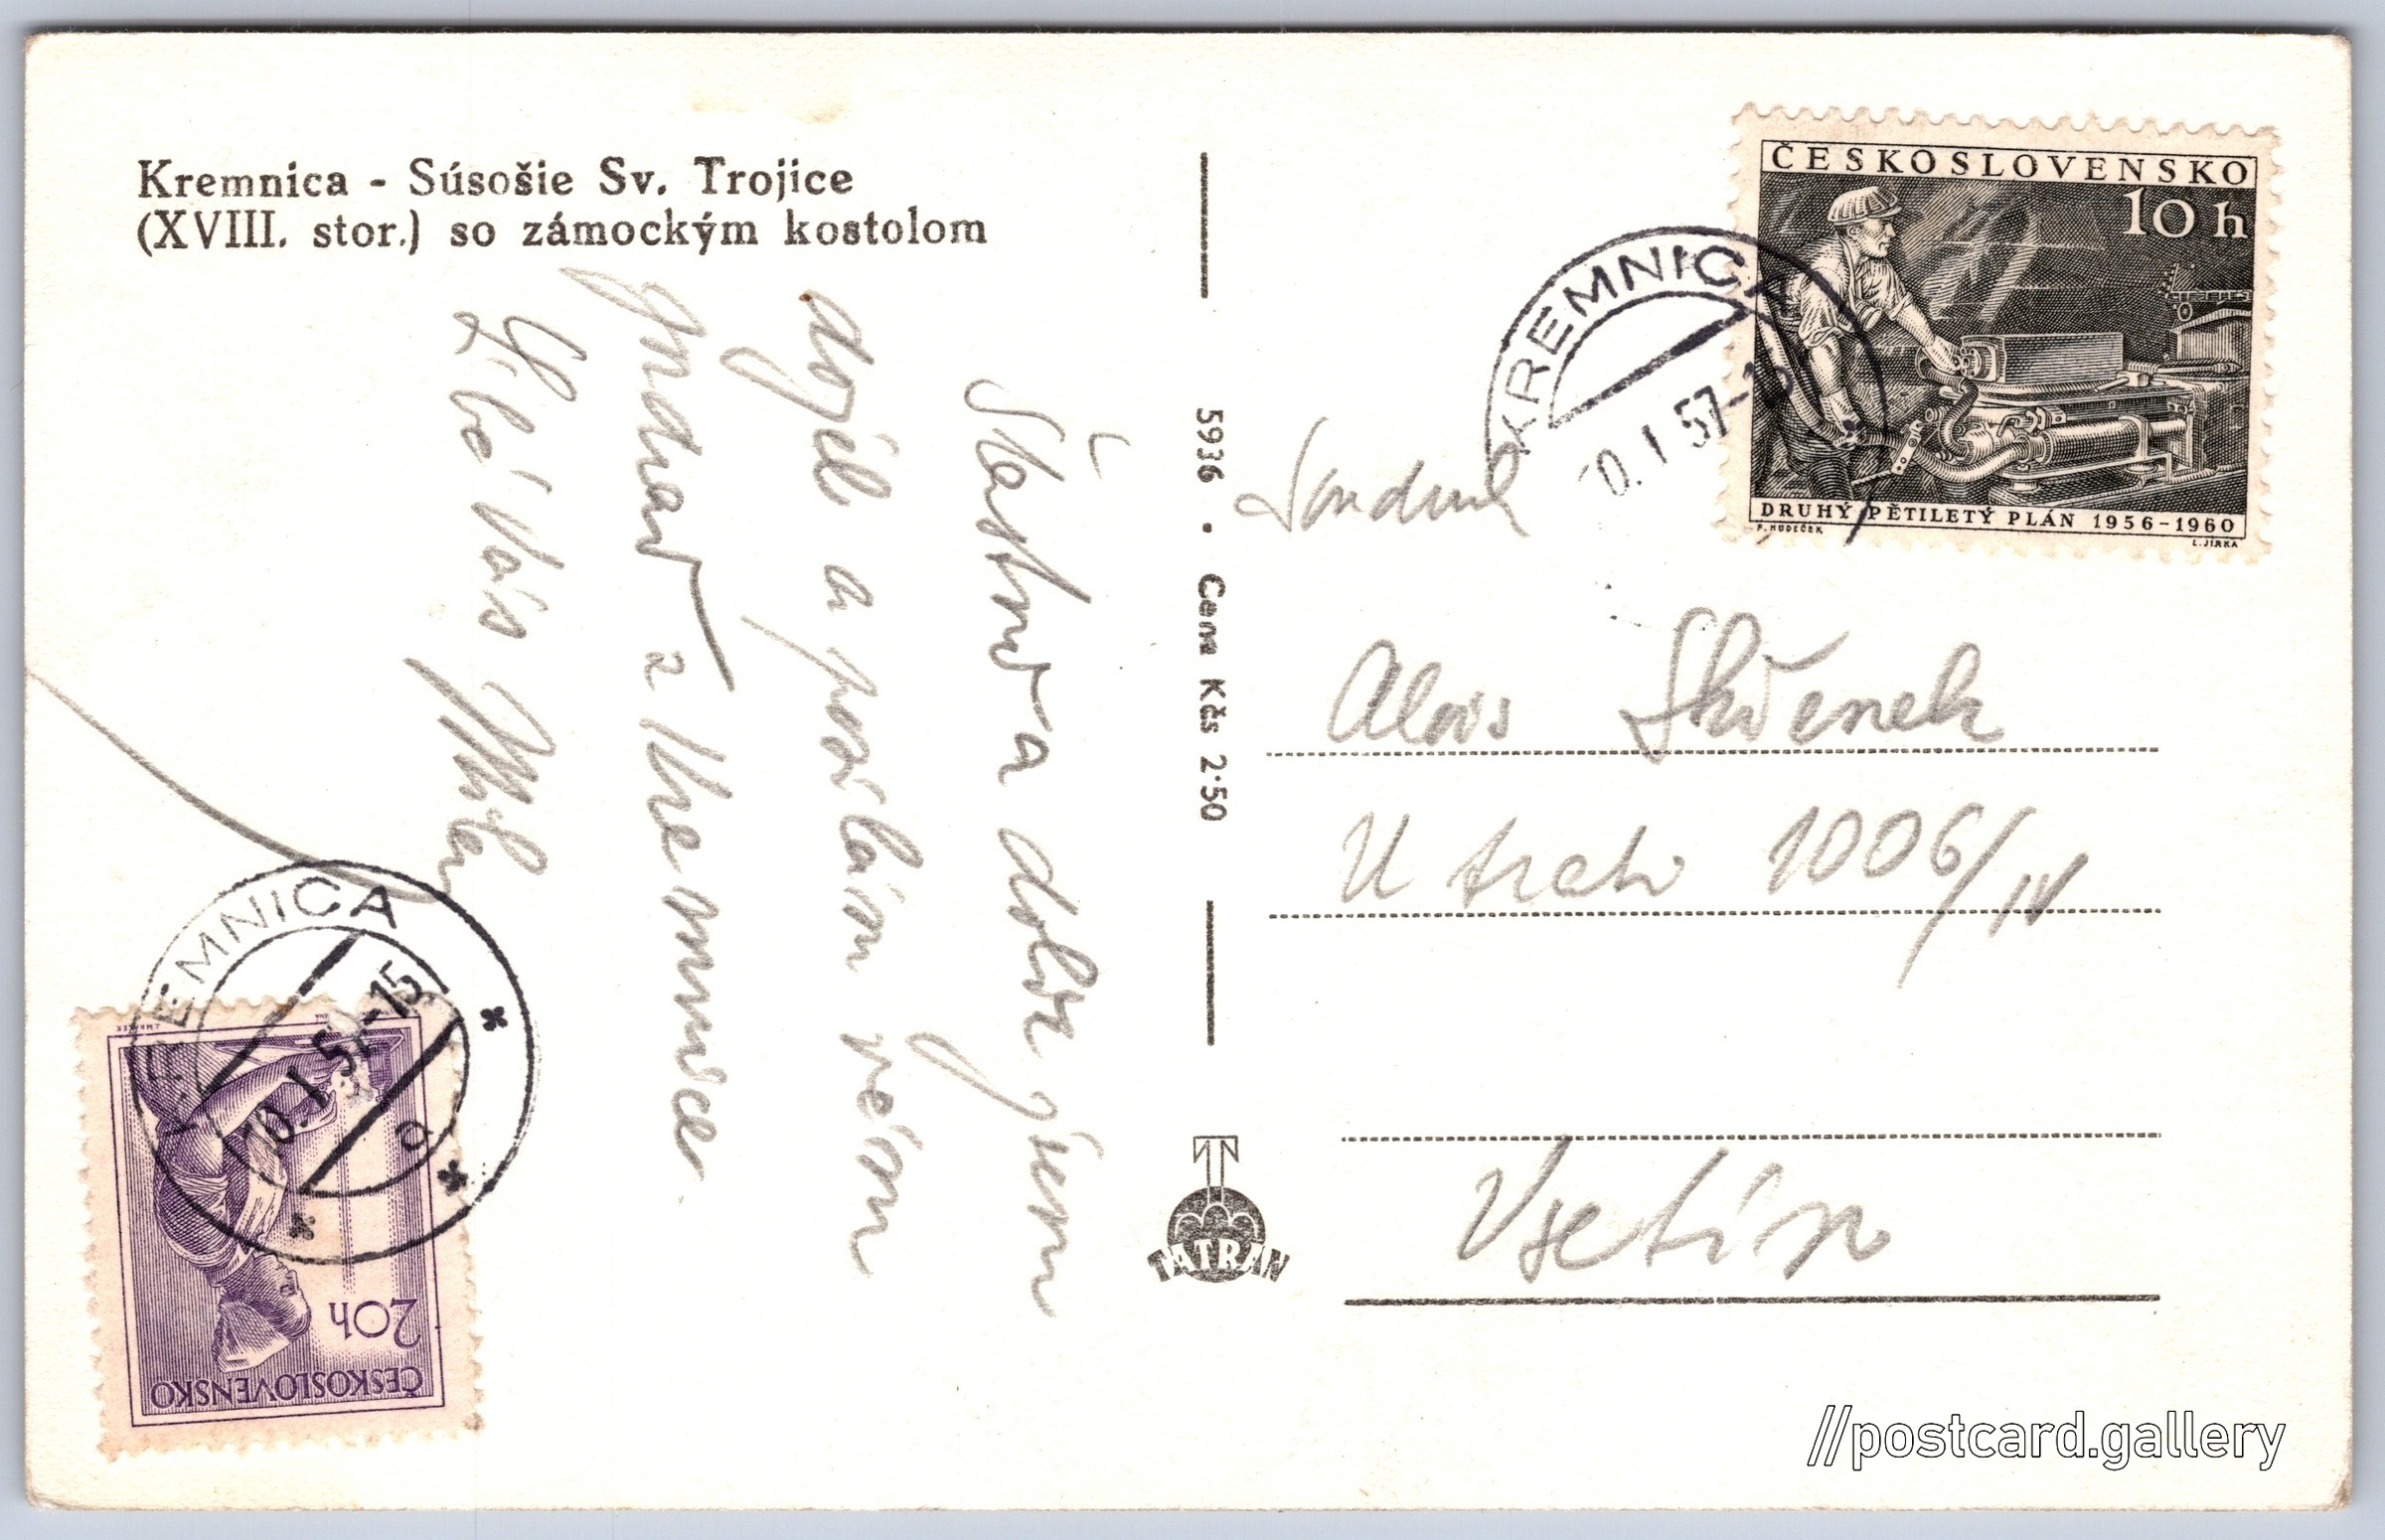 Kremnica - Súsošie Sv. Trojice
(XVIII. stor.) so zámockým kostolom
Šťastně a dobře jsem
dojel a posílám všem
pozdrav z Kremnice.
Líbá Vás
5936 • Cena Kčs 2·50
TATRAN
ČESKOSLOVENSKO
10 h
DRUHÝ PĚTILETÝ PLÁN 1956-1960
F. HUDEČEK
L. JIRKA
KREMNICA
10. I 57-15
Soudruh
Alois Skřenek
U trati 1006/IV
Vsetín
KREMNICA
10. I 57-15
a
ČESKOSLOVENSKO
20h
//postcard.gallery